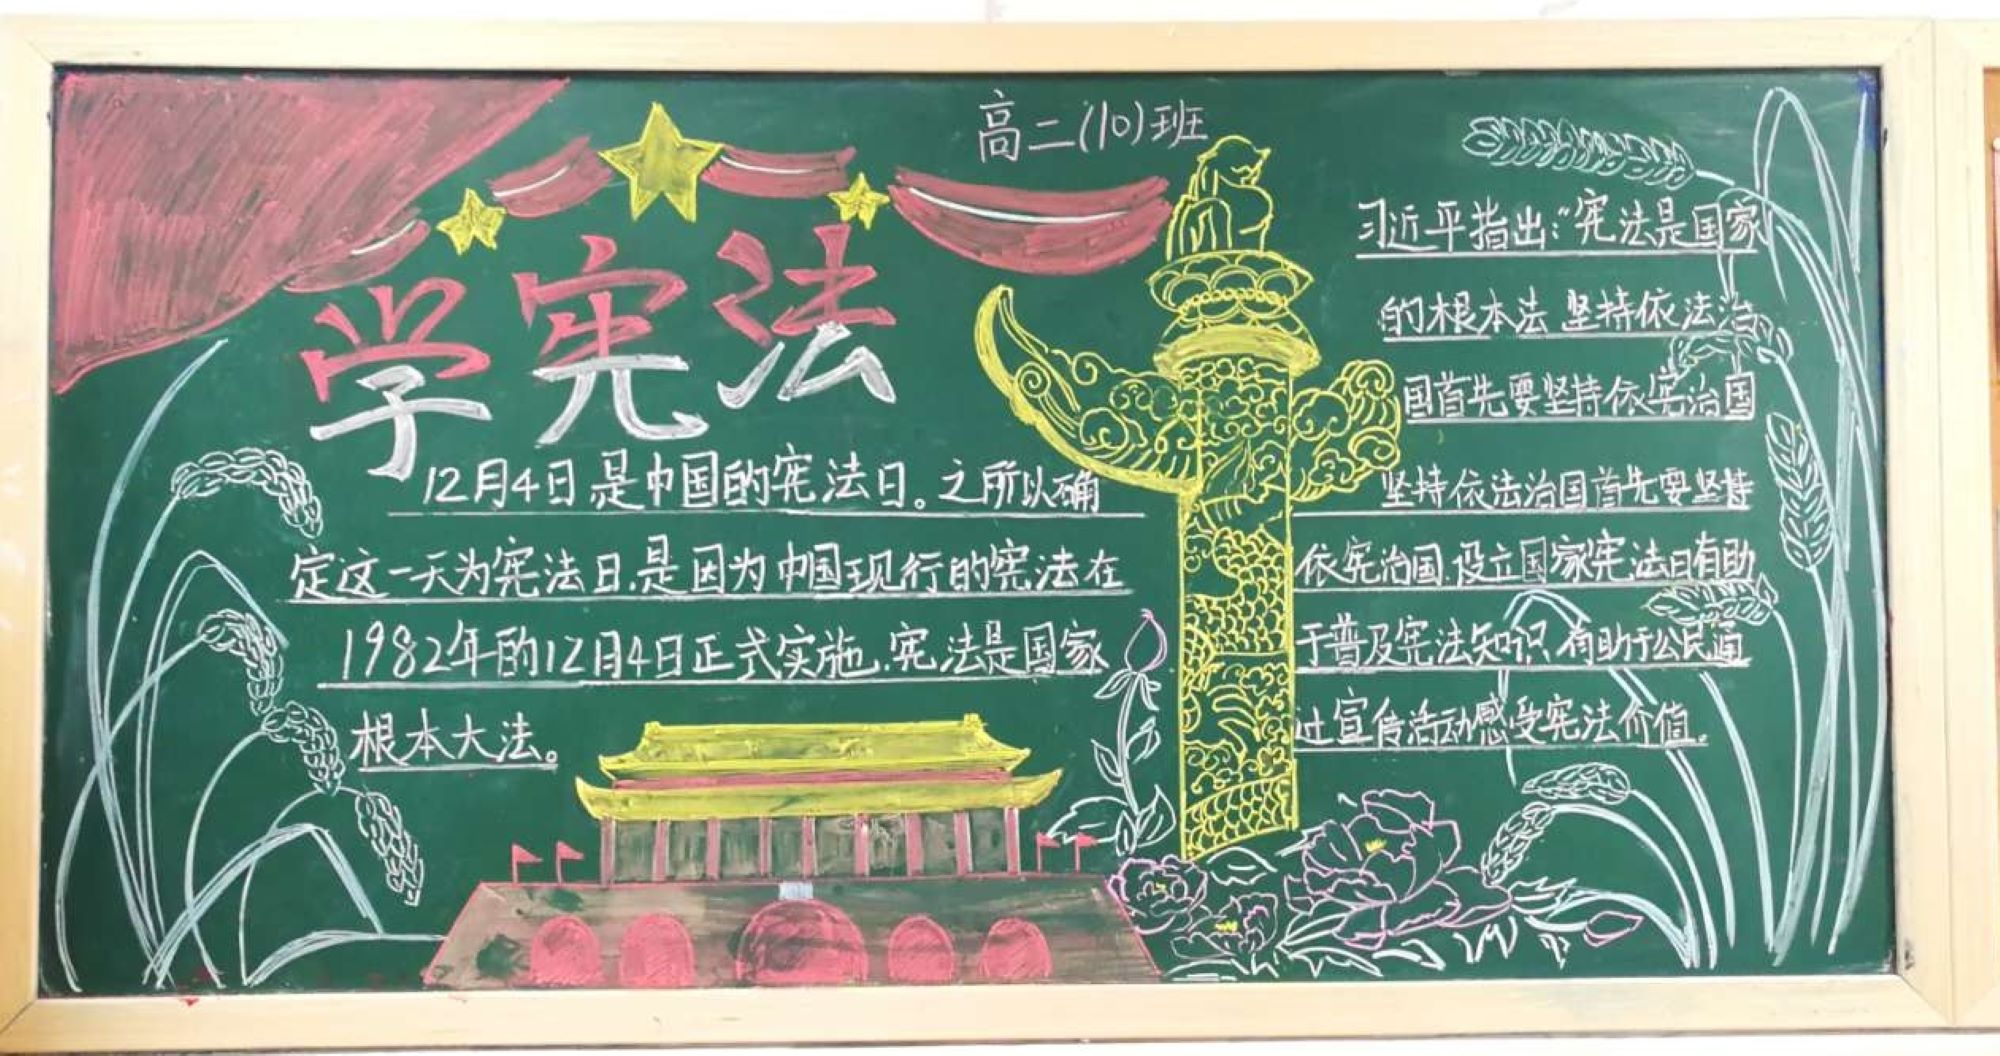 高二(10)班
学宪法
12月4日是中国的宪法日。之所以确
定这一天为宪法日,是因为中国现行的宪法在
1982年的12月4日正式实施,宪法是国家
根本大法。
习近平指出:“宪法是国家
的根本法 坚持依法治
国首先要坚持依宪治国
坚持依法治国首先要坚持
依宪治国,设立国家宪法日有助
于普及宪法知识,有助于公民通
过宣传活动感受宪法价值.